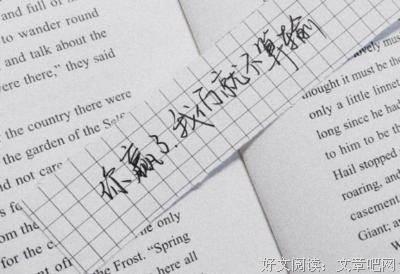 and full of
to wander round
and talk about the
were there,” they said
the country there were
the garden of the
did not care
the only
for the
off the Frost. “Spring
here all
你赢了.我们就不算输
thought it must be the
only a little linnet
long since he had
to him to be
Hail stopped
roaring, and
casement
Giant;
好文阅读: 文章吧网